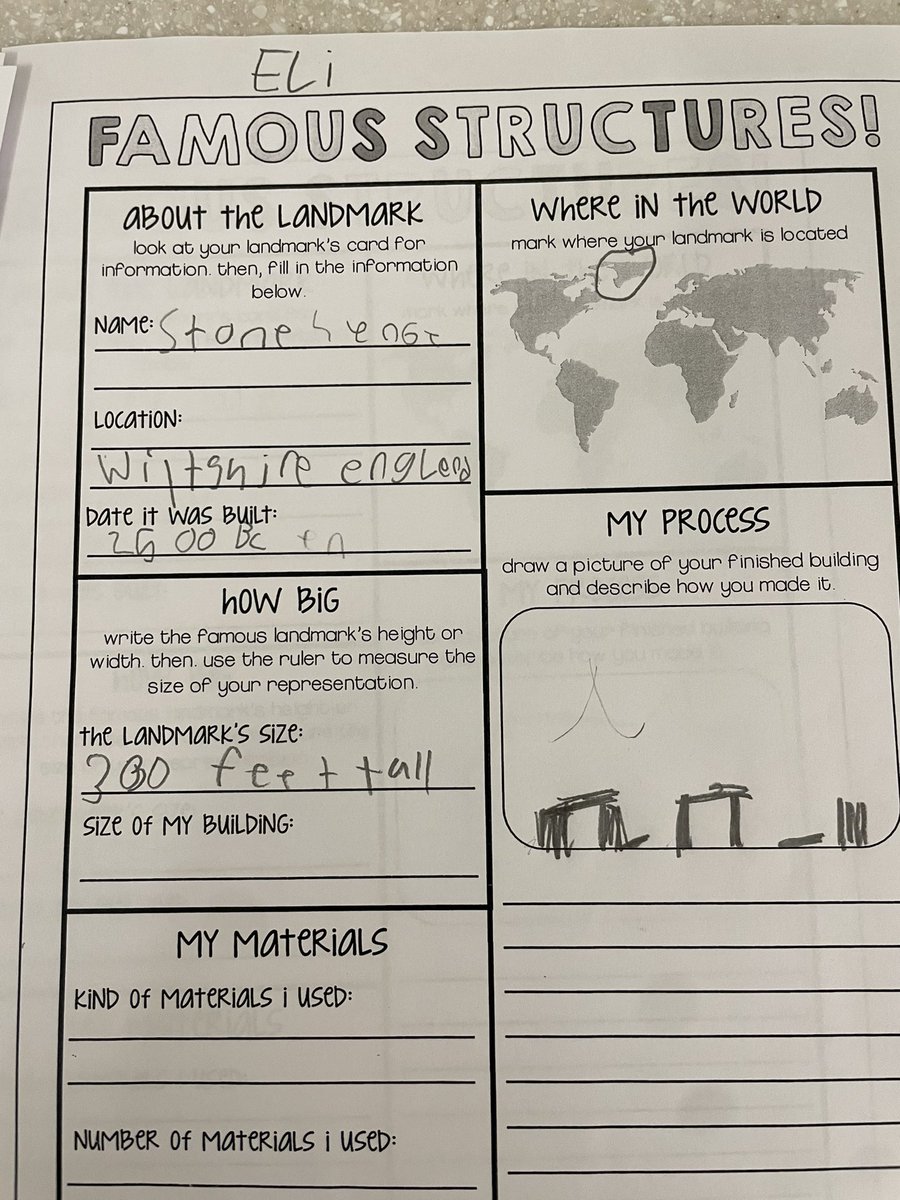 ELi
FAMOUS STRUCTURES!
about the LANDMARK
look at your landmark's card for
information. then, fill in the information
below.
Name: Stonehenge
Location:
Wiltshire englend
Date it was built:
2500 bc
how big
write the famous landmark's height or
width. then. use the ruler to measure the
size of your representation.
the Landmark's size:
300 feet tall
Size of my building:
My Materials
Kind of materials i used:
Number of materials i used:
Where in the World
mark where your landmark is located
My Process
draw a picture of your finished building
and describe how you made it.